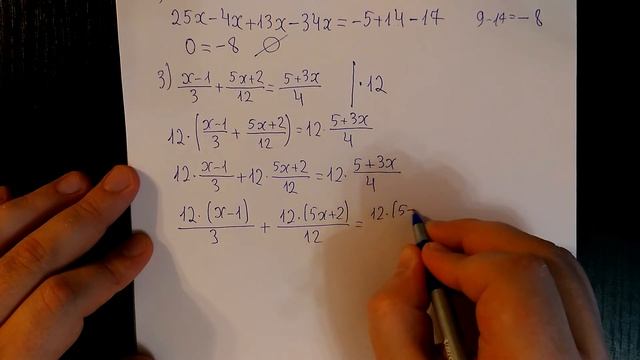 25x-4x+13x-34x=-5+14-17 9-17=-8
0=-8 ∅
3) (x-1)/3 + (5x+2)/12 = (5+3x)/4 |·12
12·((x-1)/3 + (5x+2)/12) = 12·(5+3x)/4
12·(x-1)/3 + 12·(5x+2)/12 = 12·(5+3x)/4
12·(x-1)/3 + 12·(5x+2)/12 = 12·(5